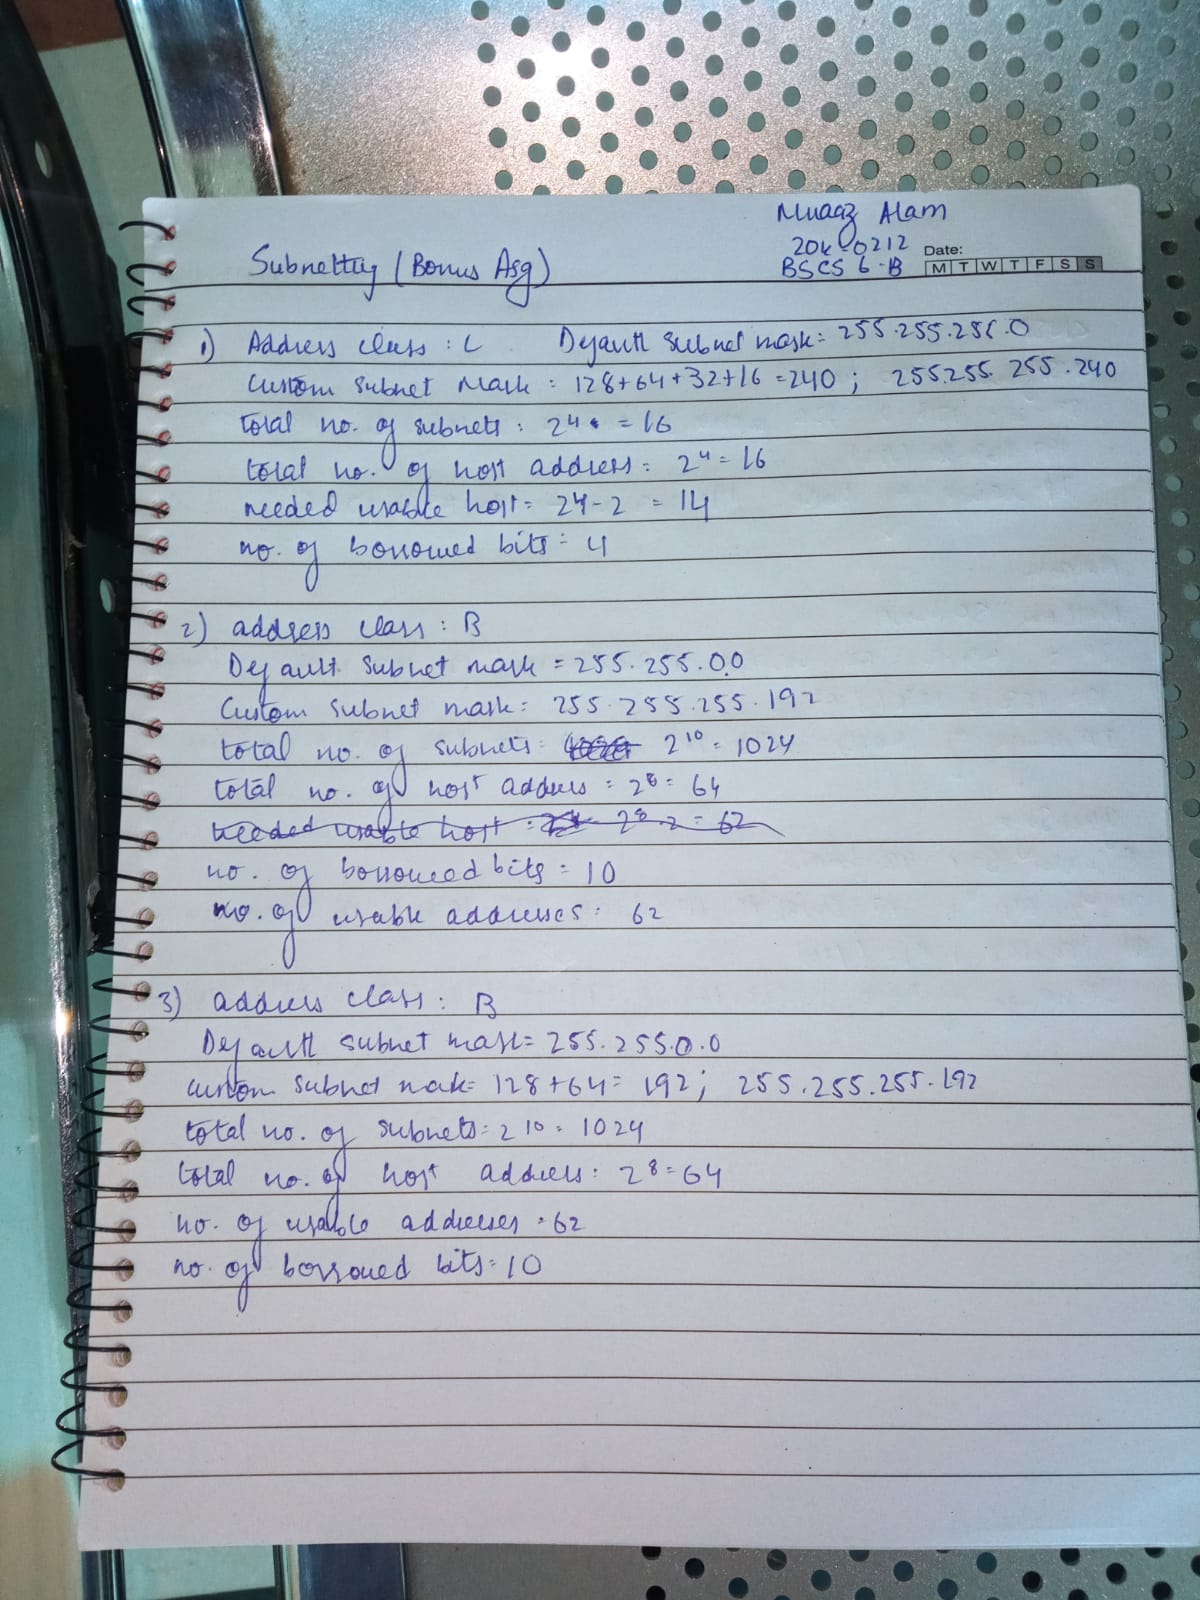 Muaaz Alam
20k-0212
BSCS 6-B
Date:
M T W T F S S
Subnetting (Bonus Asg)
1) Address class : C Default subnet mask = 255.255.255.0
Custom subnet mask = 128+64+32+16 = 240 ; 255.255.255.240
total no. of subnets : 2⁴ = 16
total no. of host address = 2⁴ = 16
needed usable host = 2⁴-2 = 14
no. of borrowed bits = 4
2) address class : B
Default subnet mask = 255.255.0.0
Custom subnet mask = 255.255.255.192
total no. of subnets : 2¹⁰ = 1024
total no. of host address = 2⁸ = 64
needed usable host = 2⁸-2 = 62
no. of borrowed bits = 10
no. of usable addresses : 62
3) address class : B
Default subnet mask = 255.255.0.0
custom subnet mask = 128+64 = 192 ; 255.255.255.192
total no. of subnets = 2¹⁰ = 1024
total no. of host address : 2⁸ = 64
no. of usable addresses = 62
no. of borrowed bits = 10